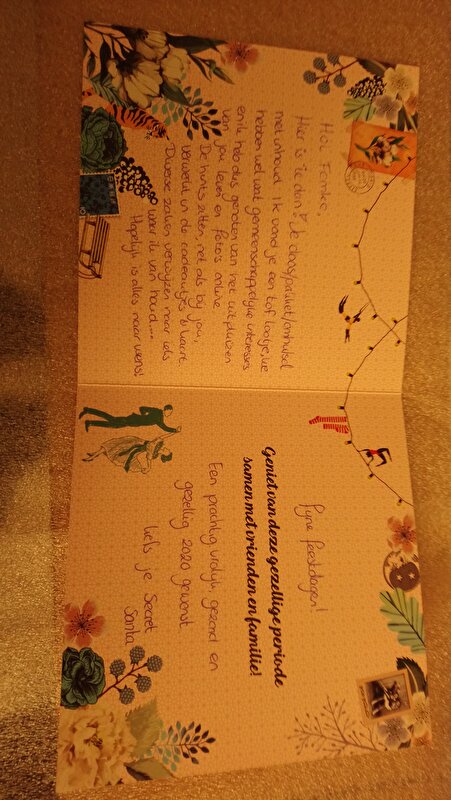 Hoi Famke,
Hier is ie dan! De doos/pakket/omhulsel
met inhoud. Ik vond je een tof lootje, we
hebben wel wat gemeenschappelijke interesses
en ik heb dus genoten van het uitpluizen
van jou leven en foto's
De hints zitten, net als bij jouw,
verwerkt in de cadeautjes & kaart.
Diverse zaken verwijzen naar iets
waar ik van houd....
Hopelijk is alles naar wens!
Fijne feestdagen!
Geniet van deze gezellige periode
samen met vrienden en familie!
Een prachtig, vrolijk, gezond en
gezellig 2020 gewenst
Liefs je Secret
Santa